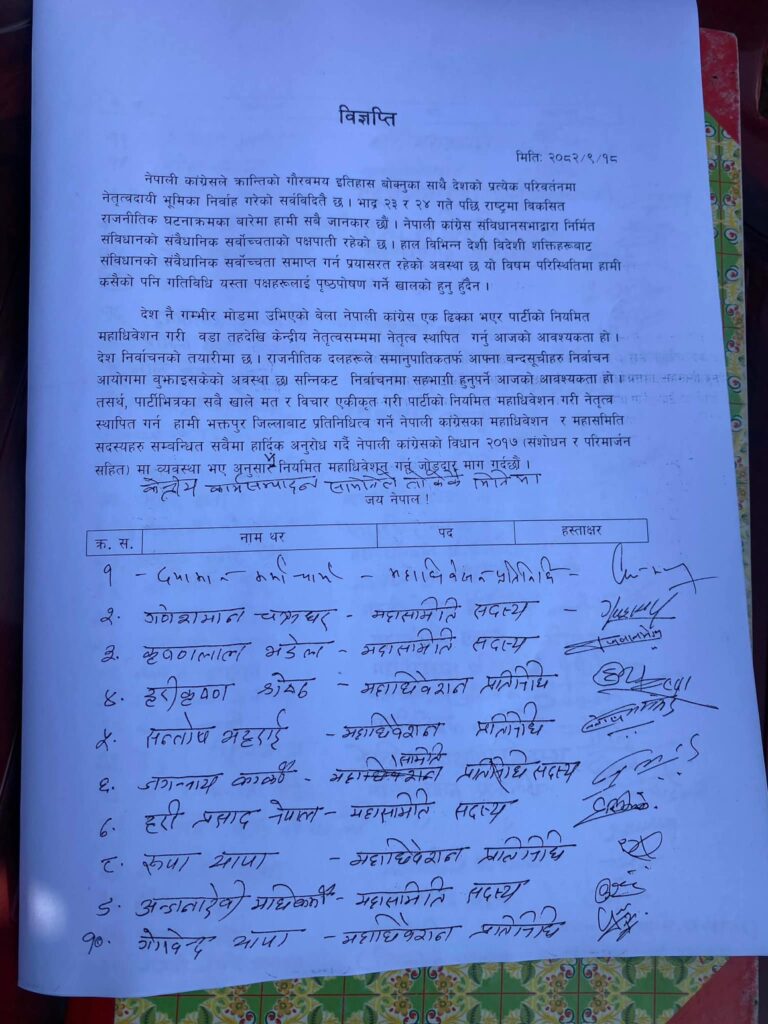 विज्ञप्ति
मितिः २०८२/९/१८
नेपाली कांग्रेसले क्रान्तिको गौरवमय इतिहास बोक्नुका साथै देशको प्रत्येक परिवर्तनमा
नेतृत्वदायी भूमिका निर्वाह गरेको सर्वविदितै छ । भाद्र २३ र २४ गते पछि राष्ट्रमा विकसित
राजनीतिक घटनाक्रमका बारेमा हामी सबै जानकार छौं । नेपाली कांग्रेस संविधानसभाद्वारा निर्मित
संविधानको संवैधानिक सर्वोच्चताको पक्षपाती रहेको छ । हाल विभिन्न देशी विदेशी शक्तिहरूबाट
संविधानको संवैधानिक सर्वोच्चता समाप्त गर्न प्रयासरत रहेको अवस्था छ यो विषम परिस्थितिमा हामी
कसैको पनि गतिविधि यस्ता पक्षहरूलाई पृष्ठपोषण गर्ने खालको हुनु हुदैन ।
देश नै गम्भीर मोडमा उभिएको बेला नेपाली कांग्रेस एक ढिक्का भएर पार्टीको नियमित
महाधिवेशन गरी वडा तहदेखि केन्द्रीय नेतृत्वसम्ममा नेतृत्व स्थापित गर्नु आजको आवश्यकता हो ।
देश निर्वाचनको तयारीमा छ । राजनीतिक दलहरूले समानुपातिकतर्फ आफ्ना बन्दसूचीहरु निर्वाचन
आयोगमा बुझाइसकेको अवस्था छ। सन्निकट निर्वाचनमा सहभागी हुनुपर्ने आजको आवश्यकता हो ।
तसर्थ, पार्टीभित्रका सबै खाले मत र विचार एकीकृत गरी पार्टीको नियमित महाधिवेशन गरी नेतृत्व
स्थापित गर्न हामी भक्तपुर जिल्लाबाट प्रतिनिधित्व गर्ने नेपाली कांग्रेसका महाधिवेशन र महासमिति
सदस्यहरु सम्वन्धित सबैमा हार्दिक अनुरोध गर्दै नेपाली कांग्रेसको विधान २०१७ (संशोधन र परिमार्जन
सहित) मा व्यवस्था भए अनुसार नियमित महाधिवेशन गर्नु जोडदार माग गर्दछौं ।
केन्द्रीय कार्यसम्पादन समितिले तोकेकै मितिमा
जय नेपाल !
क्र. स. नाम थर पद हस्ताक्षर
१ - - महाधिवेशन प्रतिनिधि -
२. गणेशमान चक्रधर - महासमिति सदस्य -
३. कृष्णलाल भडेल - महासमिति सदस्य
४. हरीकृष्ण श्रेष्ठ - महाधिवेशन प्रतिनिधि
५. सन्तोष भट्टराई - महाधिवेशन प्रतिनिधि
६. जगन्नाथ कार्की - महासमिति सदस्य
७. हरी प्रसाद नेपाल - महासमिति सदस्य
८. रूपा थापा - महाधिवेशन प्रतिनिधि
९. - महासमिति सदस्य
१०. थापा - महाधिवेशन प्रतिनिधि